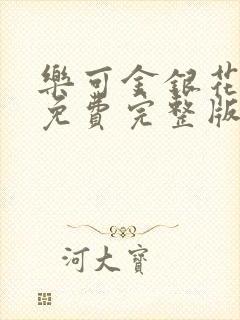 樂可金銀花
免費完整版
河大寶